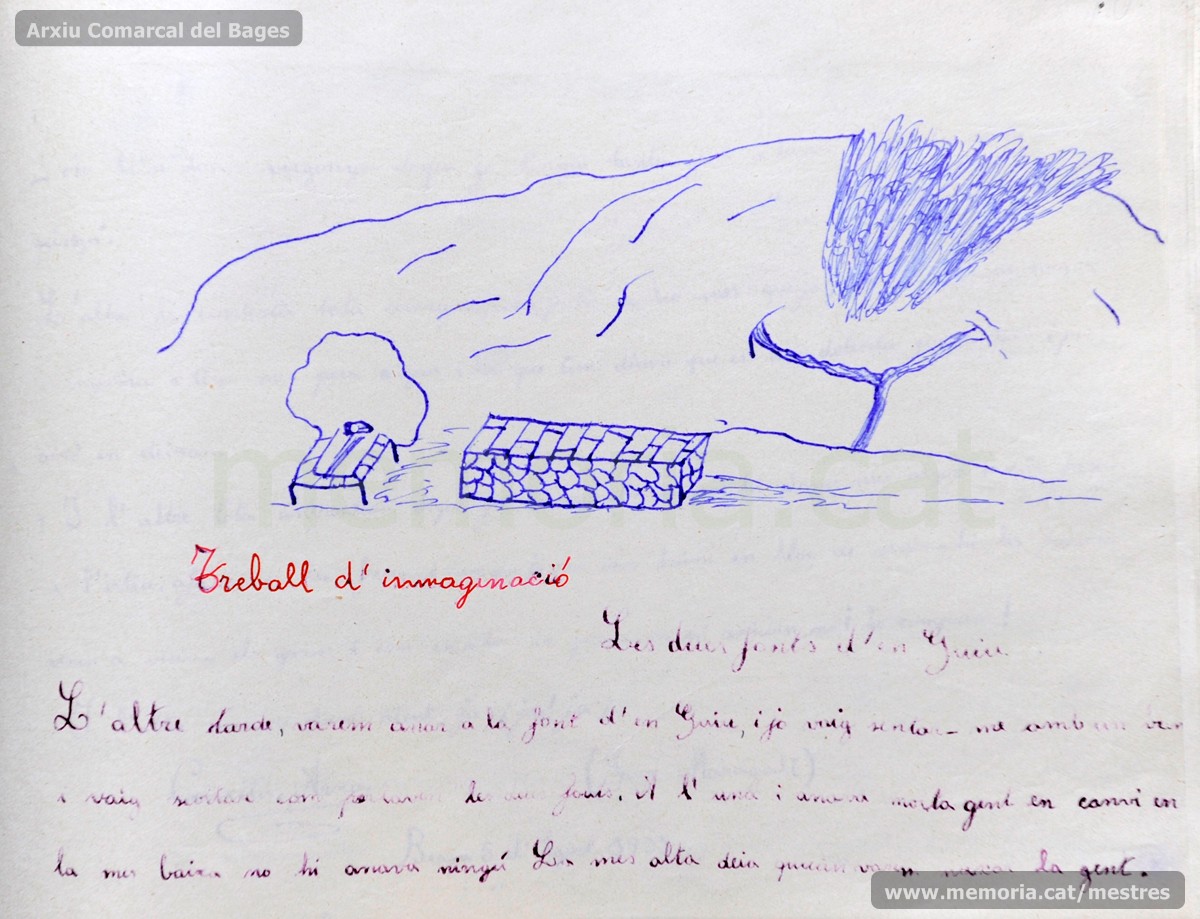 Arxiu Comarcal del Bages
memoria.cat
Treball d' inmaginació
Les deus fonts d'en Guiu
L'altre tarde, varem anar a la font d'en Guiu, i jo vaig sentar-me amb un ban
i vaig scoltar com parlaven les dues fonts. A l' una i anava molta gent en canvi en
la mes baixa no hi anava ningú La mes alta deia varem la gent.
www.memoria.cat/mestres